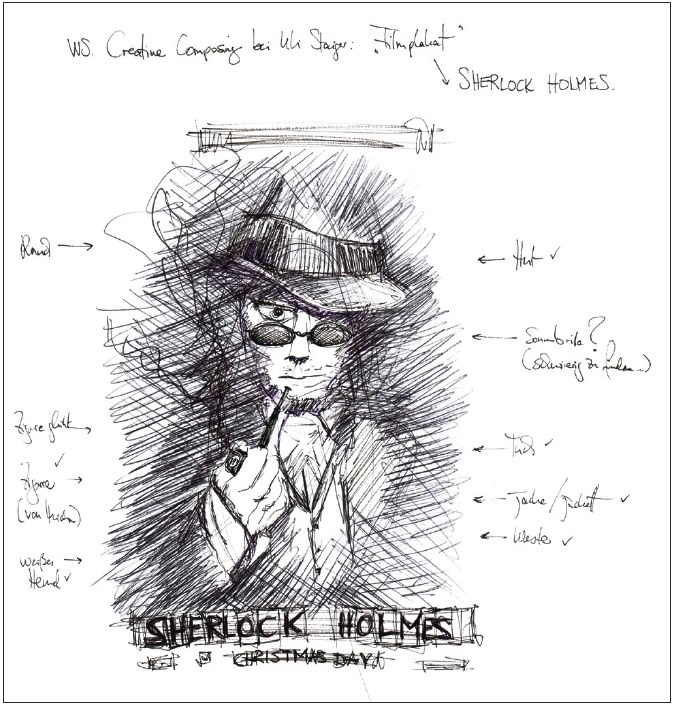 WS. Creative Composing bei Uli Staiger: "Filmplakat"
SHERLOCK HOLMES.
Hut ✓
Sonnenbrille?
(schwierig zu finden...)
Tuch ✓
Zigarre ✓
weißes
Hemd ✓
Jacke/Jackett ✓
Weste ✓
SHERLOCK HOLMES
CHRISTMAS DAY